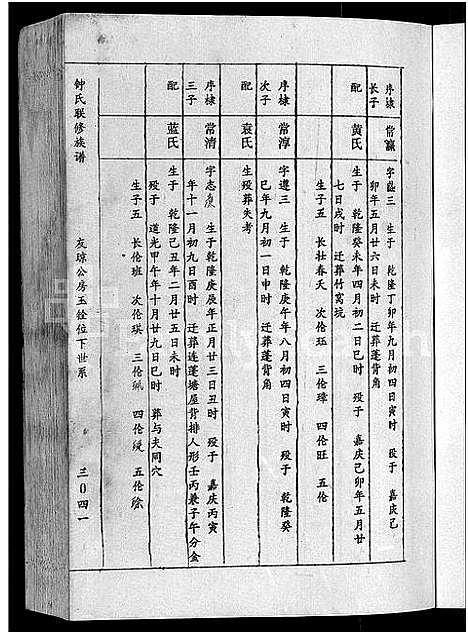 序棣 长子 常瀛 字 三 生于 乾隆丁卯年九月初四日寅时 殁于 嘉庆己
卯年五月廿六日未时 迁葬蓬背角
配 黄氏 生于 乾隆癸未年四月初二日巳时 殁于 嘉庆己卯年五月廿
七日戌时 迁葬竹窝坑
生子五 长壮春夭 次伦珏 三伦璋 四伦旺 五伦
序棣 次子 常淳 字遵三 生于 乾隆庚午年八月初四日寅时 殁于 乾隆癸
巳年九月初一日申时 迁葬蓬背角
配 袁氏 生殁葬失考
序棣 三子 常清 字志 生于乾隆庚辰年正月廿三日丑时 殁于 嘉庆丙寅
年十一月初九日酉时 迁葬连蓬塘屋背排人形壬丙兼子午分金
配 蓝氏 生于 乾隆己丑年二月廿五日未时
殁于 道光甲午年十月廿九日巳时 葬与夫同穴
生子五 长伦班 次伦琪 三伦佩 四伦绶 五伦
钟氏联修族谱 友琼公房玉铨位下世系 三0四一